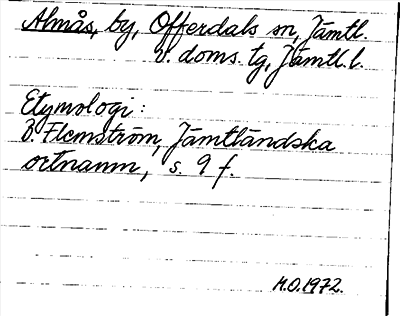 Almås, by, Offerdals sn, Jämtl.
v. doms. tg, Jämtl. l.
Etymologi:
B. Flemström, Jämtländska
ortnamn, s. 9 f.
M.O. 1972.